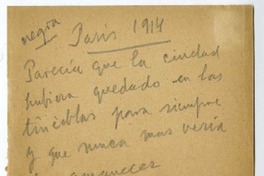 negra
Paris 1914
Parecía que la ciudad
hubiera quedado en las
tinieblas para siempre
y que nunca mas vería
amanecer